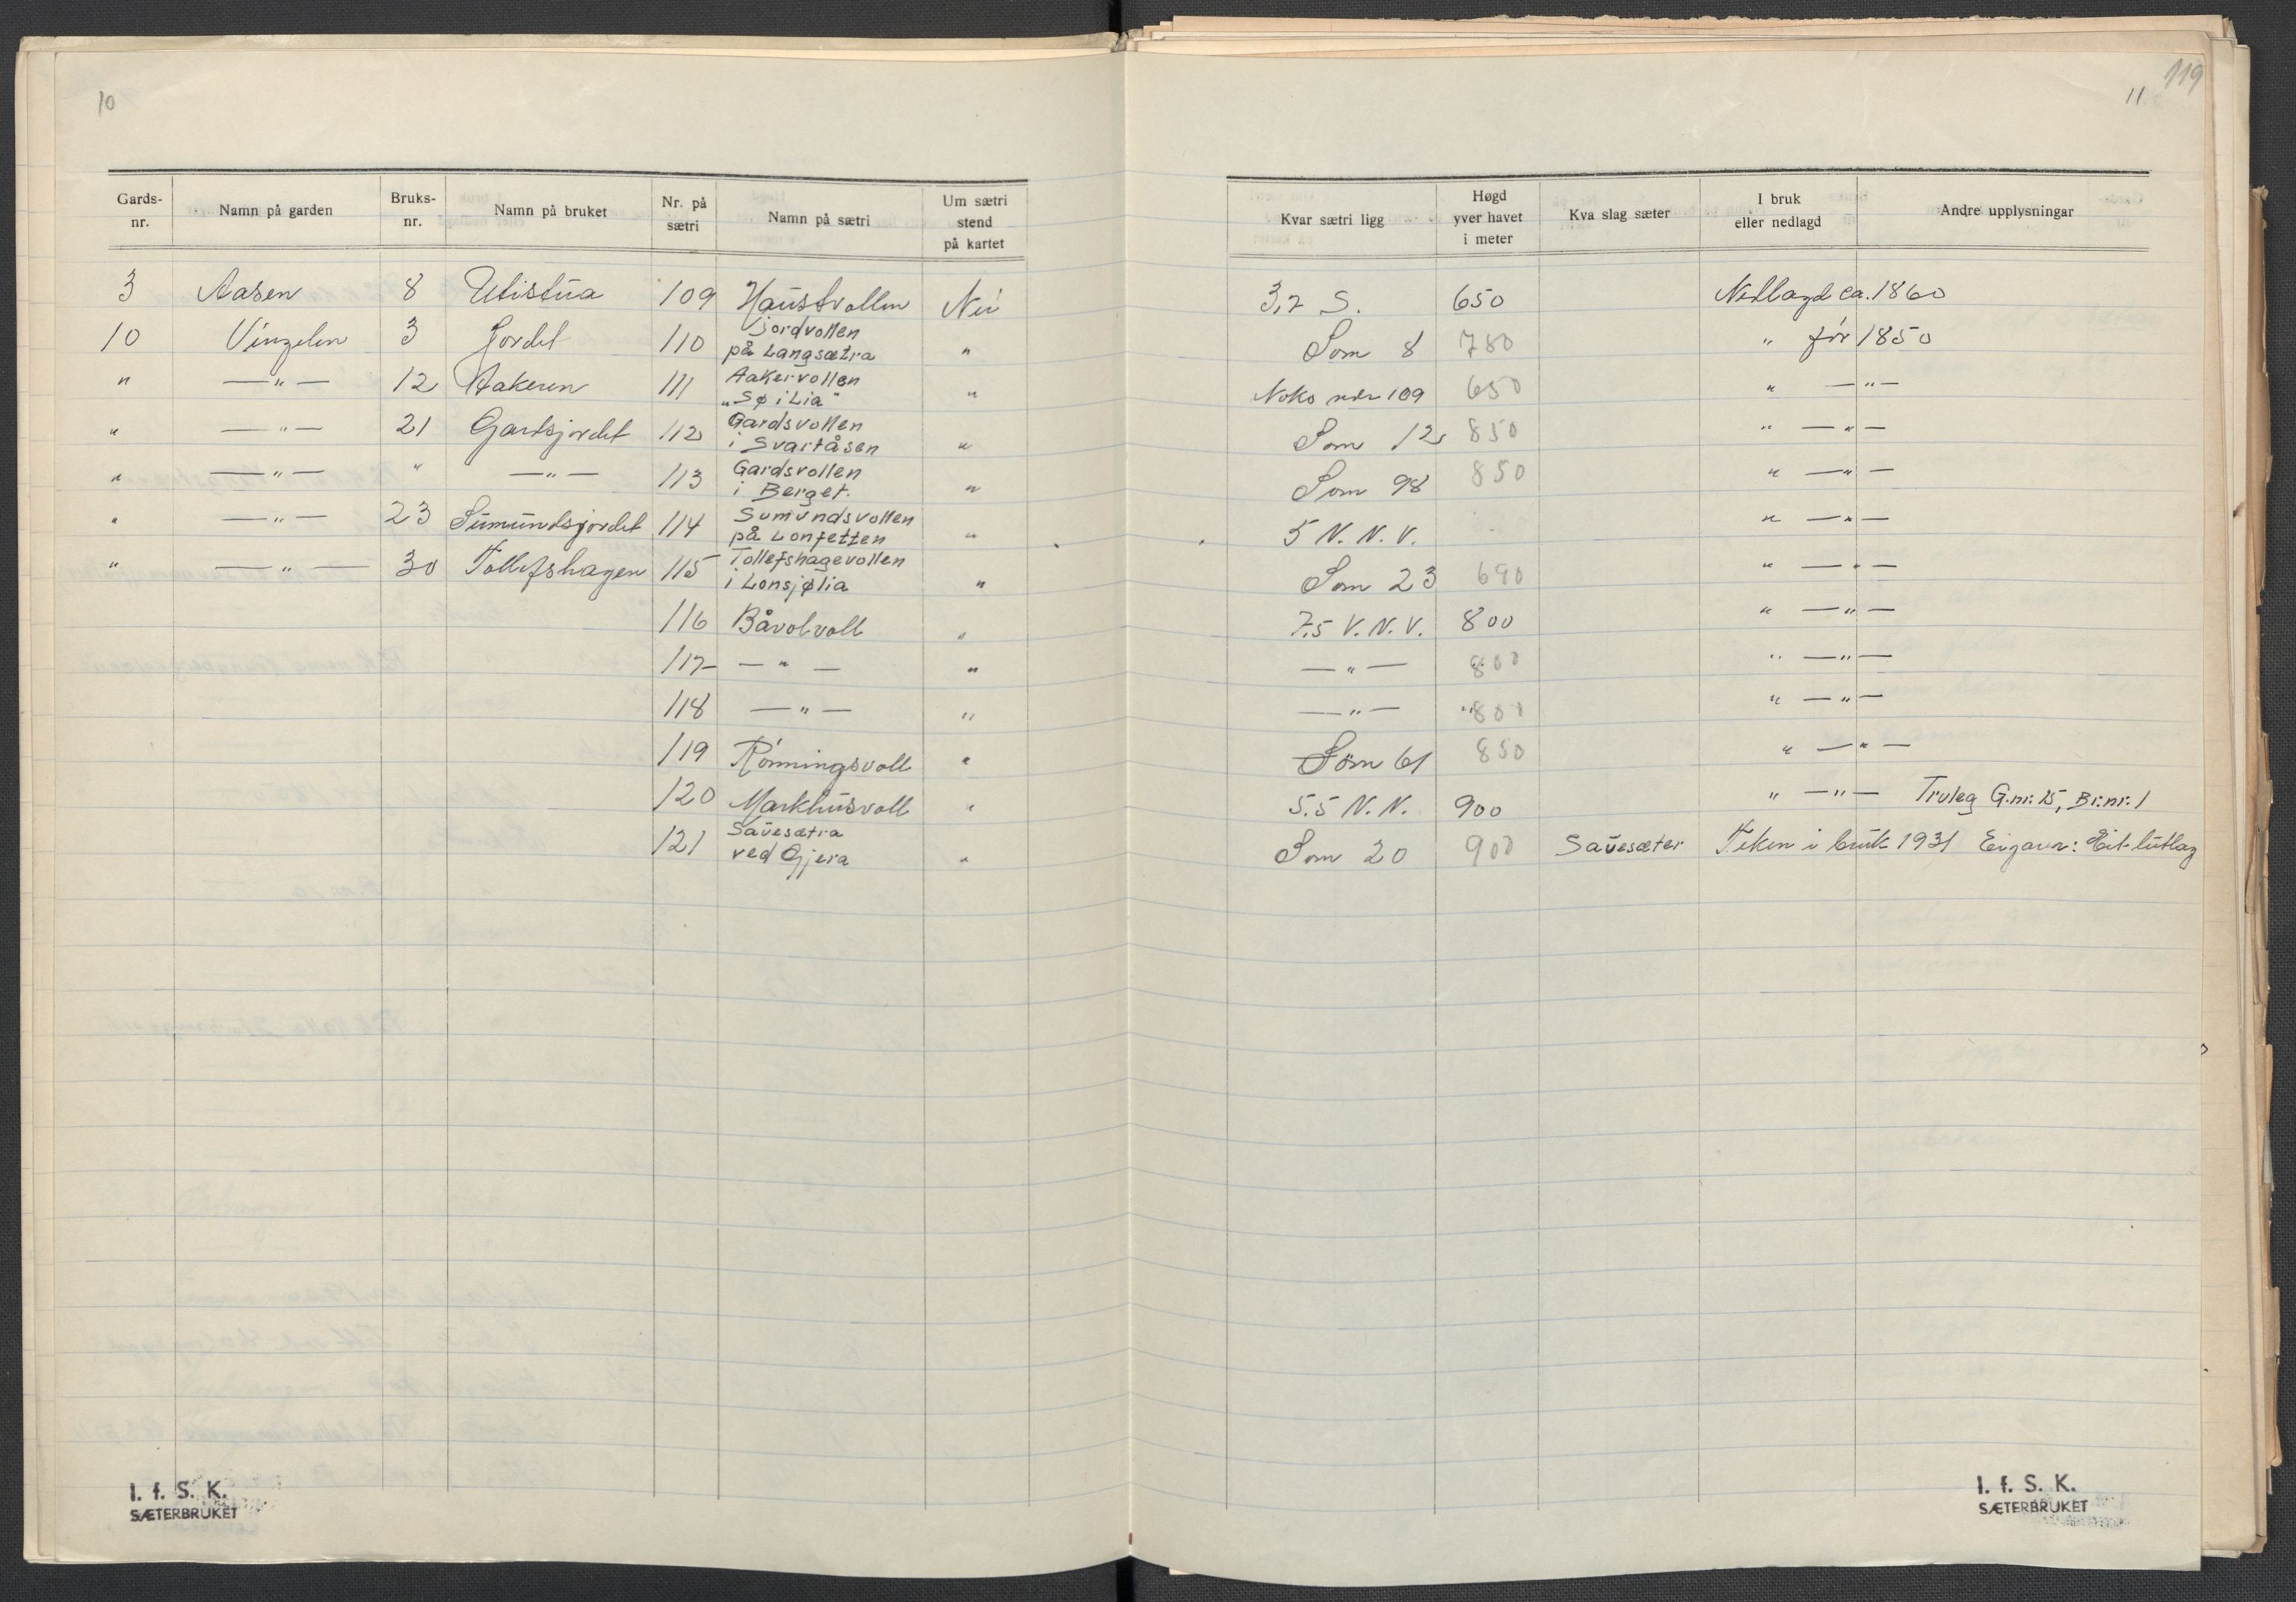 10
Gards-nr. Namn på garden Bruks-nr. Namn på bruket Nr. på sætri Namn på sætri Um sætri stend på kartet
3 Aasen 8 Utistua 109 Haustvollen Nei
10 Vingelen 3 Jordet 110 Jordvollen på Langsætra "
" — " — 12 Aakeren 111 Aakervollen „Sø i Lia" "
" — " — 21 Gardsjordet 112 Gardsvollen i Svartåsen "
" — " — " — " — 113 Gardsvollen i Berget. "
" — " — 23 Simundsjordet 114 Simundsvollen på Lonfetten "
" — " — 30 Tollefshagen 115 Tollefshagevollen i Lonsjølia "
116 Båvolvoll "
117 — " — "
118 — " — "
119 Rønningsvoll "
120 Markhusvoll "
121 Sauesætra ved Gjera "
I. f. S. K.
SÆTERBRUKET
119
11
Kvar sætri ligg Høgd yver havet i meter Kva slag sæter I bruk eller nedlagd Andre upplysningar
3,2 S. 650 Nedlagd ca. 1860
Som 8 780 " før 1850
Noko nær 109 650 " — " —
Som 12 850 " — " —
Som 98 850 " — " —
5 N. N. V. " — " —
Som 23 690 " — " —
7.5 V. N. V. 800 " — " —
— " — 800 " — " —
— " — 800 " — " —
Som 61 850 " — " —
5.5 N. N. 900 " — " — Truleg G.nr. 15, Br.nr. 1
Som 20 900 Sauesæter Teken i bruk 1931 Eigarar: Eit lutlag
I. f. S. K.
SÆTERBRUKET